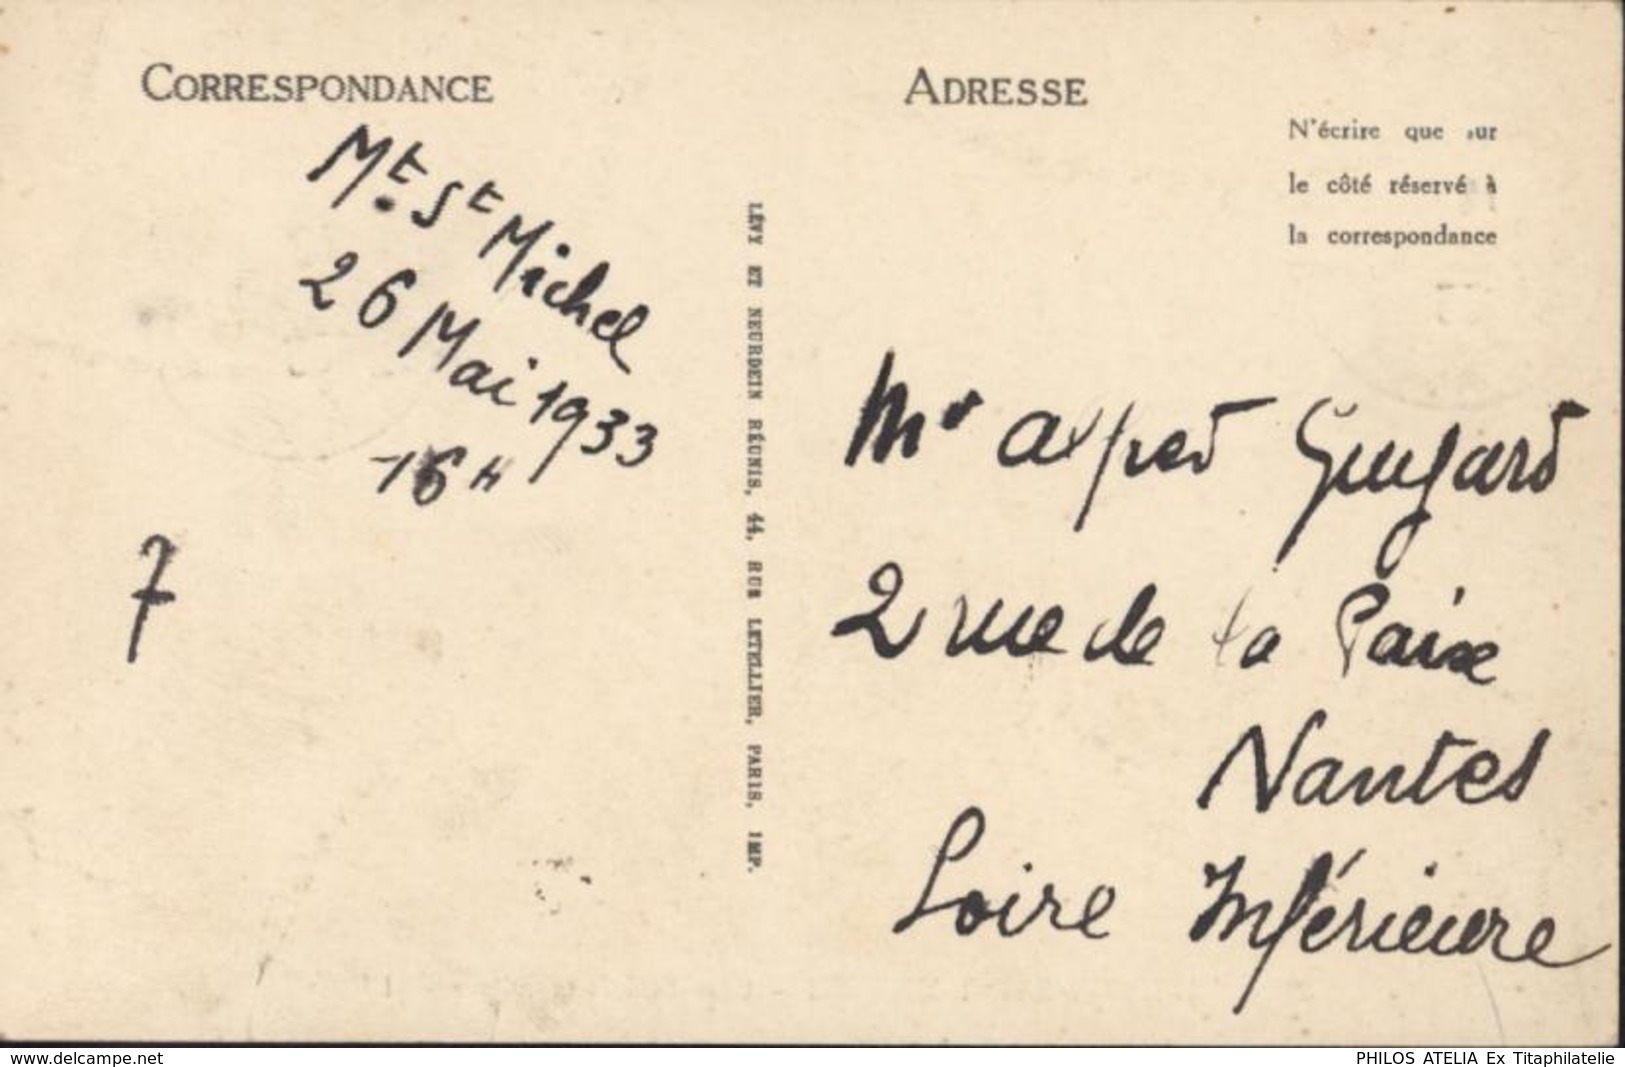 CORRESPONDANCE
Mt. St Michel
26 Mai 1933
16 H
7
LÉVY ET NEURDEIN RÉUNIS, 44, RUE LETELLIER, PARIS, IMP.
ADRESSE
N'écrire que sur
le côté réservé à
la correspondance
Mr Alfred Guyard
2 rue de la Paix
Nantes
Loire Inférieure
www.delcampe.net
PHILOS ATELIA Ex Titaphilatelie